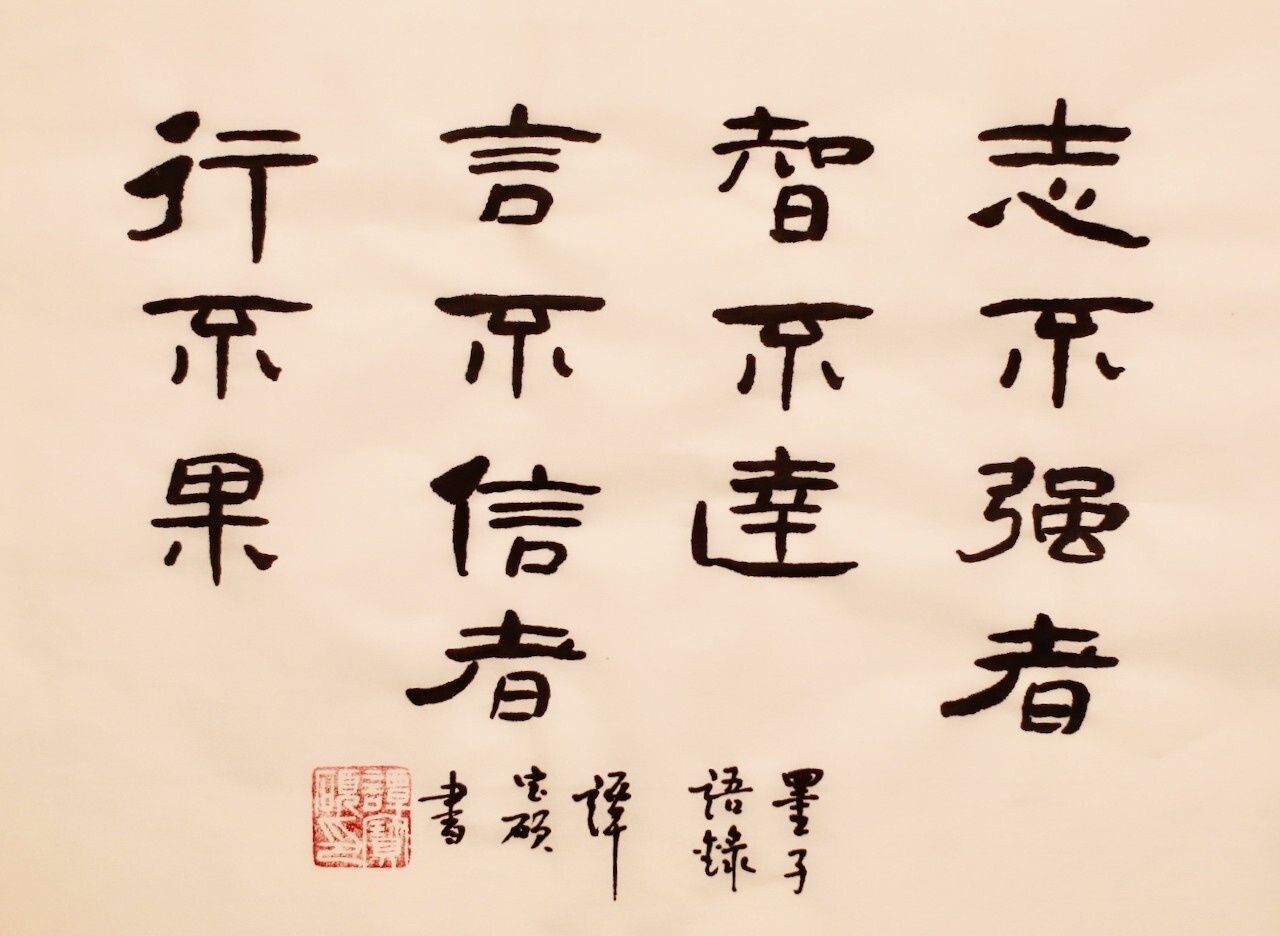 志不强者
智不達
言不信者
行不果
墨子
語錄
譚
宝硕
書
譚寶
碩印